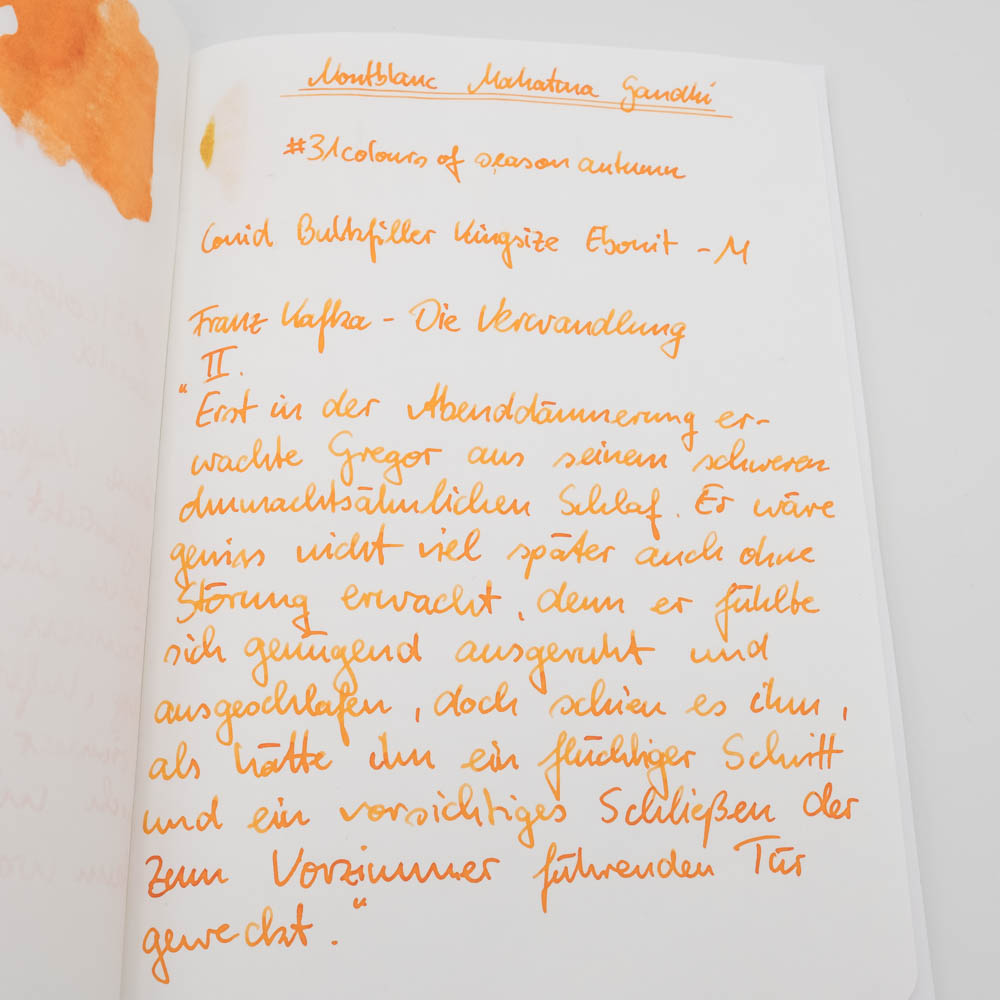 Montblanc Mahatma Gandhi
#31colours of season autumn
Conid Bulkfiller Kingsize Ebonit - M
Franz Kafka - Die Verwandlung
II.
"Erst in der Abenddämmerung er-
wachte Gregor aus seinem schweren
ohnmachtsähnlichen Schlaf. Er wäre
gewiss nicht viel später auch ohne
Störung erwacht, denn er fühlte
sich genügend ausgeruht und
ausgeschlafen, doch schien es ihm,
als hätte ihn ein flüchtiger Schritt
und ein vorsichtiges Schließen der
zum Vorzimmer führenden Tür
geweckt."